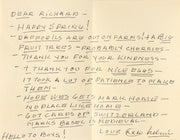 DEAR RICHARD -
- HAPPY SPRING!
- DAFFODILS ARE OUT ON FARMS + A BIG
FRUIT TREES - PROBABLY CHERRIES -
- THANK YOU FOR YOUR KINDNESS -
- I THANK YOU FOR NICE EGGS -
- IT TOOK A LOT OF PATIENCE TO MAKE
THEM -
- HOPE GETS MARK HOME -
NO PLACE LIKE HOME -
- GOT CARDS OF SWITZERLAND
MARKS BASEL IS MEDIEVAL
LOVE
HELLO TO BOYS!